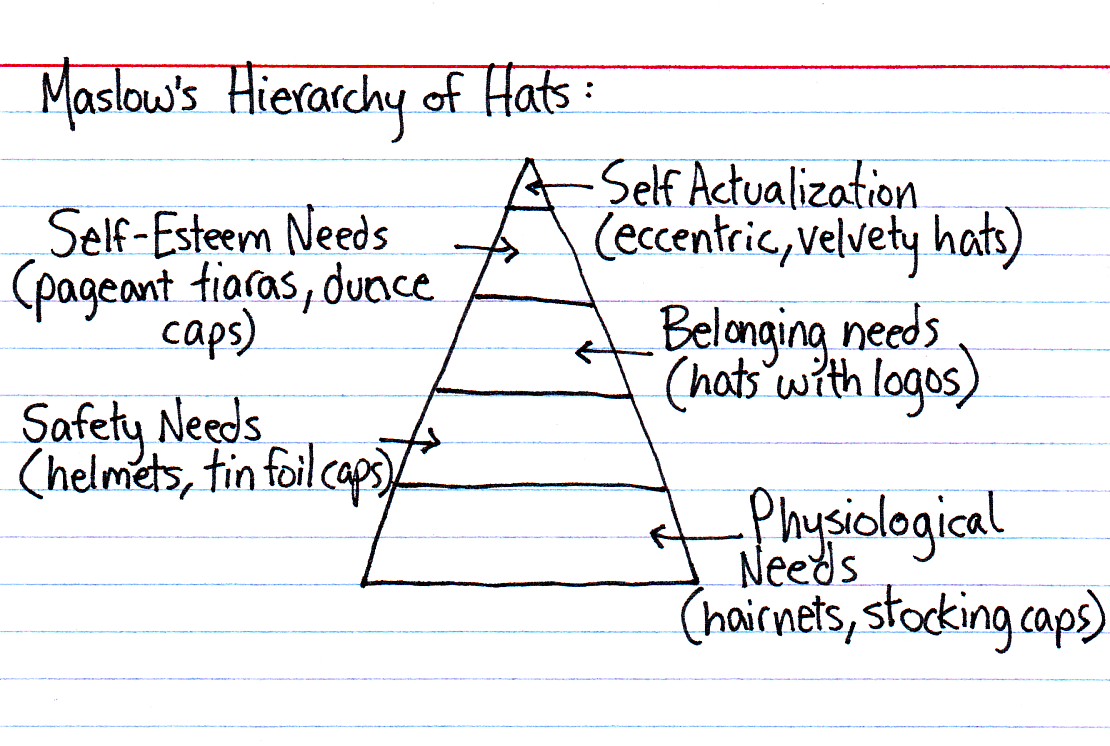 Maslow's Hierarchy of Hats:
Self Actualization
(eccentric, velvety hats)
Self-Esteem Needs
(pageant tiaras, dunce
caps)
Belonging needs
(hats with logos)
Safety Needs
(helmets, tin foil caps)
Physiological
Needs
(hairnets, stocking caps)